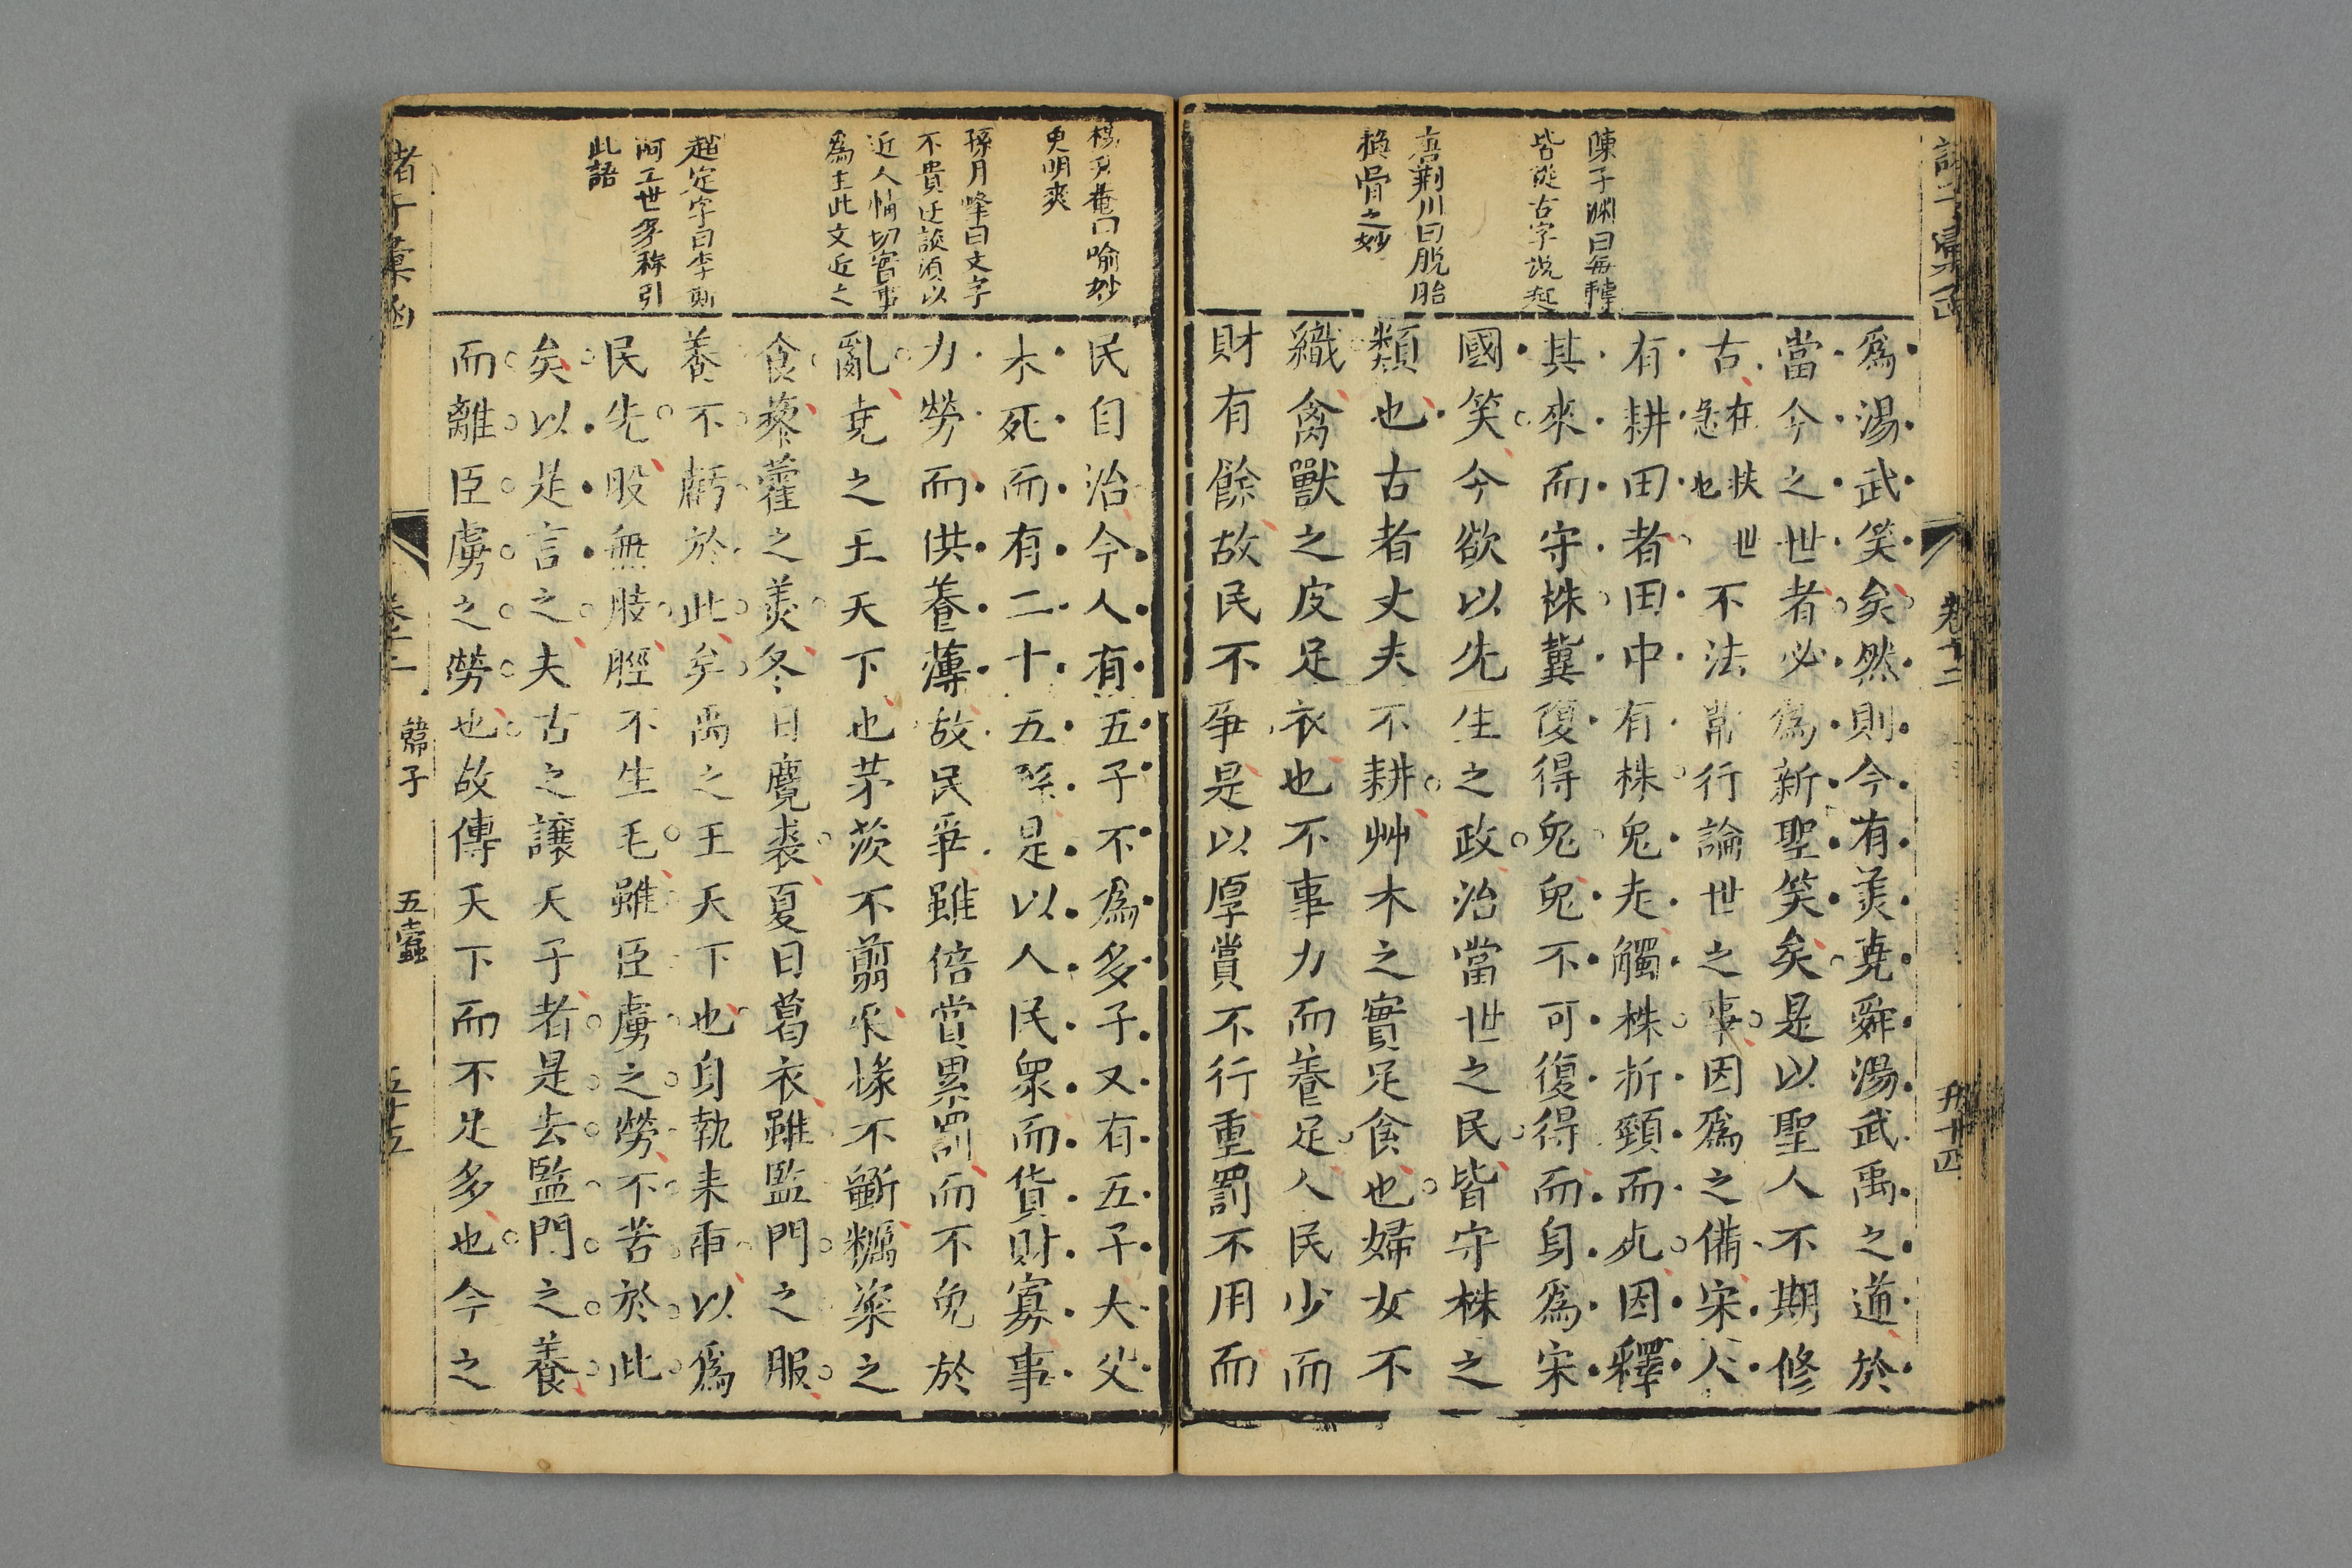 諸子彙函
卷十二
五十四
陳子淵曰每轉
皆從古字說起
唐荆川曰脫胎
換骨之妙
爲湯武笑矣然則今有美堯舜湯武禹之道於
當今之世者必爲新聖笑矣是以聖人不期修
古在扶世急也世不法常行論世之事因爲之備宋人
有耕田者田中有株兔走觸株折頸而死因釋
其來而守株冀復得兔兔不可復得而身爲宋
國笑今欲以先生之政治當世之民皆守株之
類也古者丈夫不耕艸木之實足食也婦女不
織禽獸之皮足衣也不事力而養足人民少而
財有餘故民不爭是以厚賞不行重罰不用而
曰喻妙
更明爽
孫月峰曰文字
不貴迂談須以
近人情切實事
爲主此文近之
趙定宇曰李斯
阿二世多称引
此語
民自治今人有五子不爲多子又有五子大父
木死而有二十五孫是以人民衆而貨財寡事
力勞而供養薄故民爭雖倍賞累罰而不免於
亂堯之王天下也茅茨不翦采椽不斲糲粢之
食藜藿之羮冬日麑裘夏日葛衣雖監門之服
養不虧於此矣禹之王天下也身執耒臿以爲
民先股無胈脛不生毛雖臣虜之勞不苦於此
矣以是言之夫古之讓天子者是去監門之養
而離臣虜之勞也故傳天下而不足多也今之
諸子彙函
卷十二
韓子
五蠹
五十五